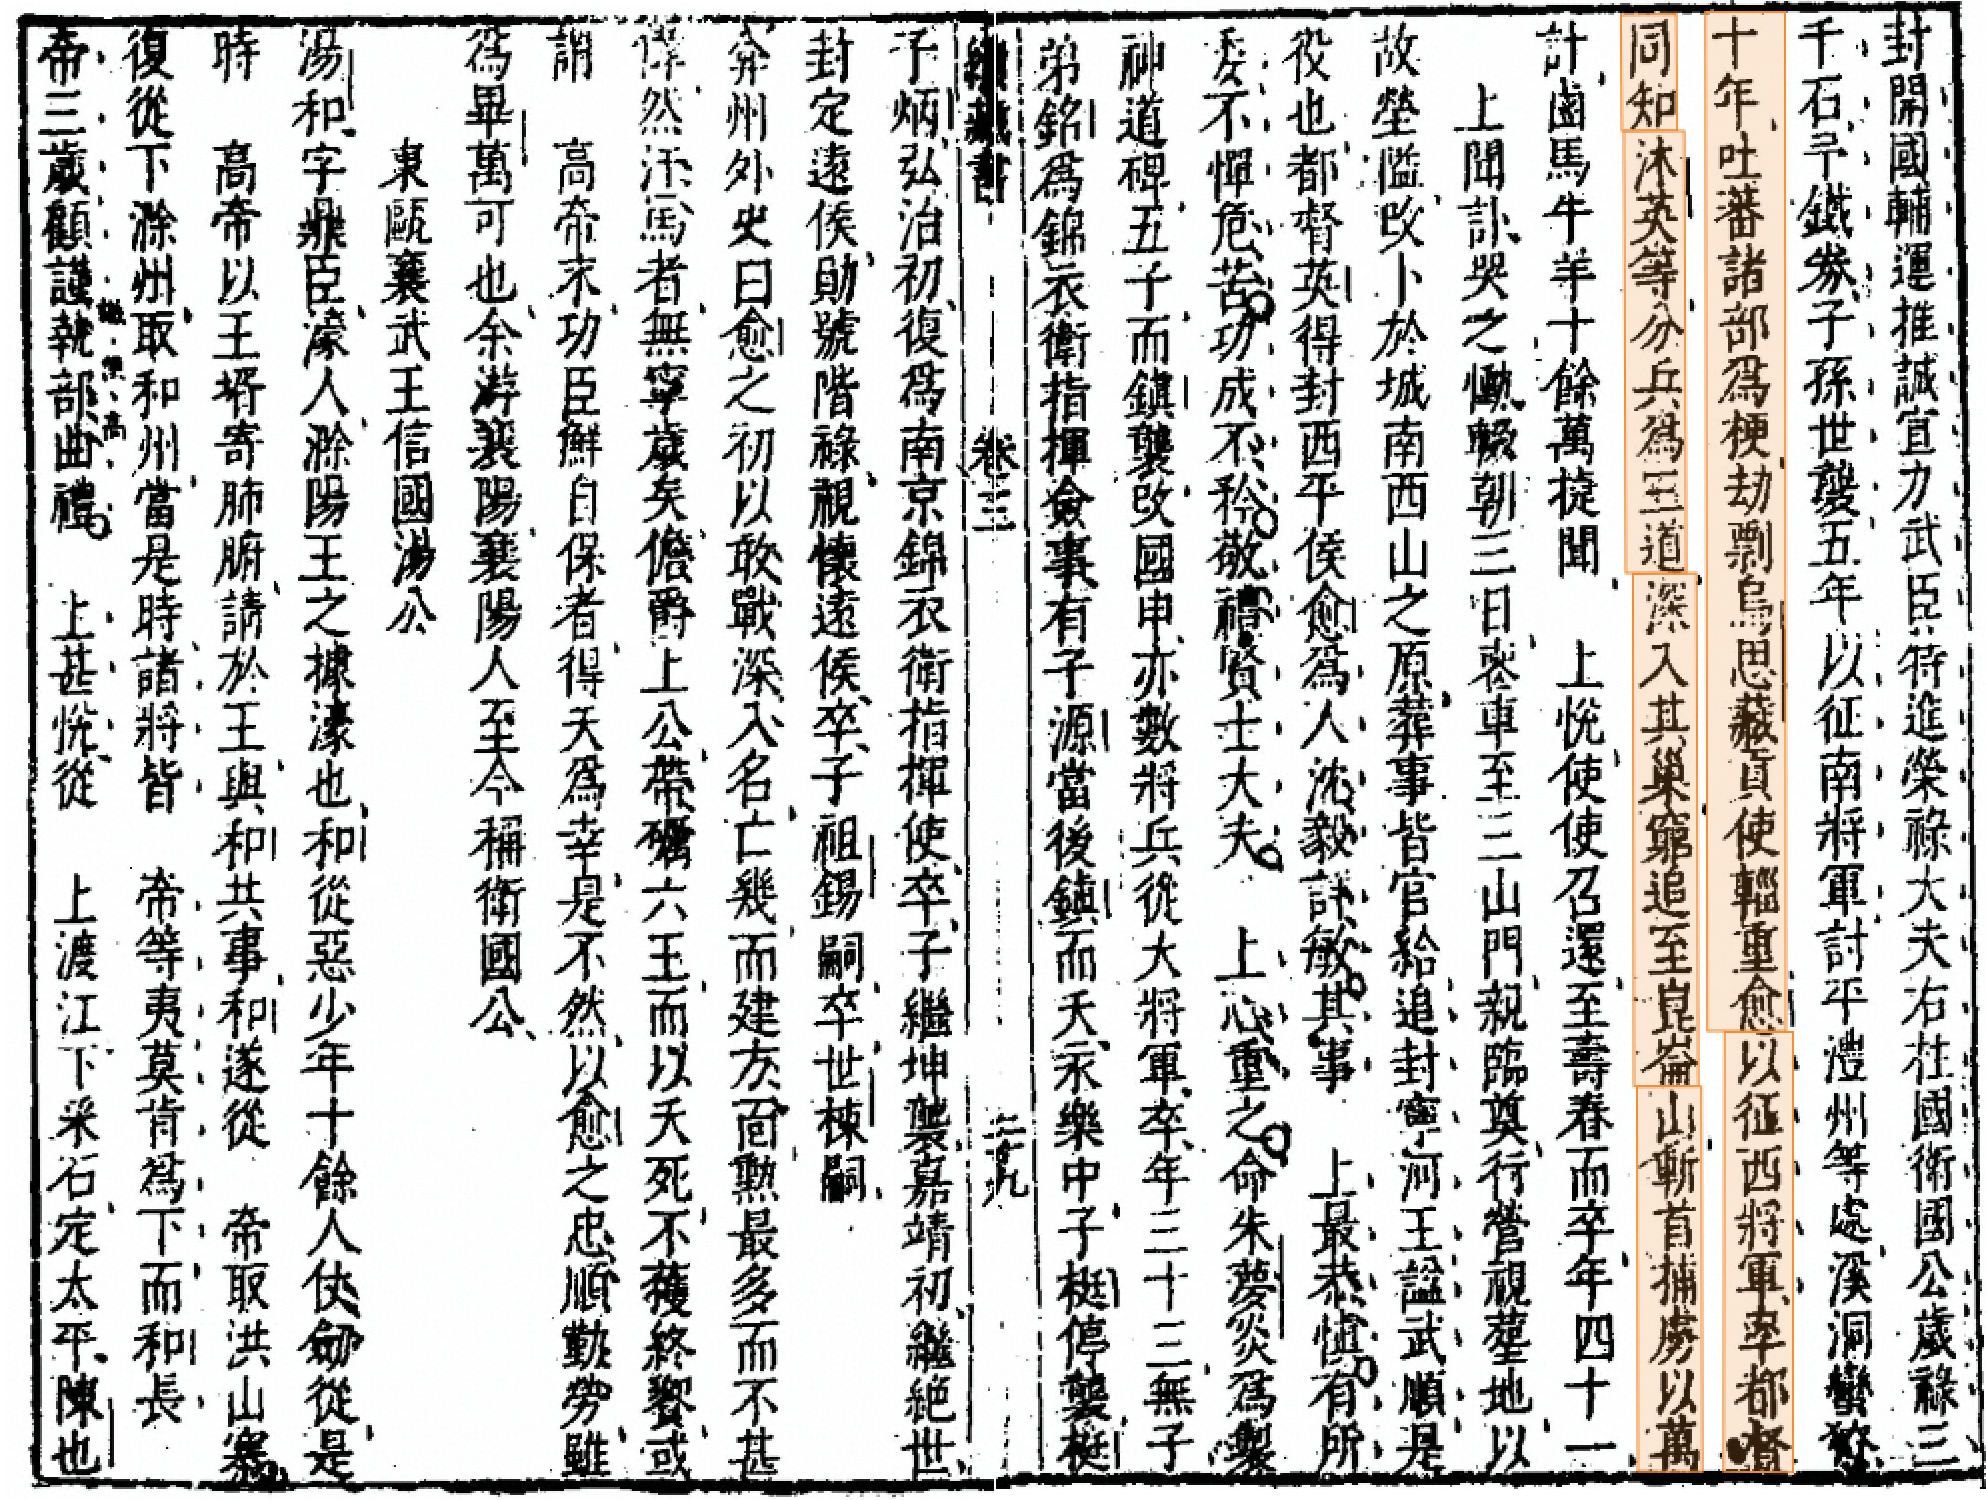 封開國輔運推誠宣力武臣特進榮祿大夫右柱國衛國公歲祿三
千石予鐵券子孫世襲五年以征南將軍討平澧州等處溪洞蠻獠
十年吐蕃諸部爲梗劫剽烏思藏貢使輜重愈以征西將軍率都督
同知沐英等分兵爲三道深入其巢窮追至崑崙山斬首捕虜以萬
計鹵馬牛羊十餘萬捷聞 上悅使使召還至壽春而卒年四十一
上聞訃哭之慟輟朝三日喪車至三山門親臨奠行營視塟地以
故塋隘改卜於城南西山之原葬事皆官給追封寧河王謚武順是
役也都督英得封西平侯愈爲人沈毅詳敏其事 上最恭慎有所
委不憚危苦功成不矜敬禮賢士大夫 上心重之命朱夢炎爲製
神道碑五子而鎮襲改國申亦數將兵從大將軍卒年三十三無子
弟銘爲錦衣衛指揮僉事有子源當後鎮而夭永樂中子梃停襲梃
續藏書 卷三 二十九
子炳弘治初復爲南京錦衣衛指揮使卒子繼坤襲嘉靖初繼絶世
封定遠侯勛號階祿視懷遠侯卒子祖錫嗣卒世棟嗣
弇州外史曰愈之初以敢戰深入名亡幾而建方面勲最多而不甚
悍然汗馬者無寧歲矣儋爵上公帶礪六王而以夭死不獲終饗或
謂 高帝末功臣鮮自保者得夭爲幸是不然以愈之忠順勤勞雖
爲畢萬可也余游襄陽襄陽人至今稱衛國公
東甌襄武王信國湯公
湯和字鼎臣濠人滁陽王之據濠也和從惡少年十餘人伏劒從是
時 高帝以王壻寄肺腑請於王與和共事和遂從 帝取洪山寨
復從下滁州取和州當是時諸將皆 帝等夷莫肯爲下而和長
帝三歲顧謹執部曲禮 上甚悅從 上渡江下采石定太平陳也